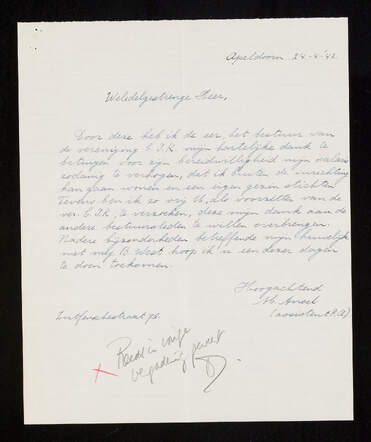 Apeldoorn 24-4-'42
Weledelgestrenge Heer,
Door deze heb ik de eer, het bestuur van
de vereniging C.I.K. mijn hartelijke dank te
betuigen voor zijn bereidwilligheid mijn salaris
zodanig te verhogen, dat ik buiten de inrichting
kan gaan wonen en een eigen gezin stichten
Tevens ben ik zo vrij U, als voorzitter van de
ver. C.I.K., te verzoeken, deze mijn dank aan de
andere bestuursleden te willen overbrengen.
Nadere bijzonderheden betreffende mijn huwelijk
met mej. B. West hoop ik U een dezer dagen
te doen toekomen.
Hoogachtend
(assistent P.A.)
Zutfensestraat
Reeds in vorige
vergadering